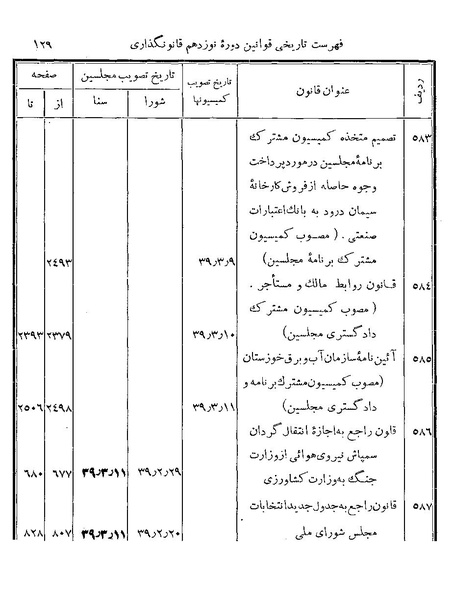 فهرست تاریخی قوانین دورهٔ نوزدهم قانونگذاری ۱۲۹
ردیف عنوان قانون تاریخ تصویب کمیسیونها تاریخ تصویب مجلسین صفحه
شورا سنا از تا
۵۸۳ تصمیم متخذه کمیسیون مشترک
برنامهٔ مجلسین درمورد پرداخت
وجوه حاصله از فروش کارخانهٔ
سیمان درود به بانک اعتبارات
صنعتی . ( مصوب کمیسیون
مشترک برنامهٔ مجلسین) ۳۹٫۳٫۹ ۲۴۹۳
۵۸۴ قانون روابط مالک و مستأجر .
( مصوب کمیسیون مشترک
دادگستری مجلسین) ۳۹٫۳٫۱۰ ۲۳۷۹ ۲۳۹۳
۵۸۵ آئین‌نامهٔ سازمان آب و برق خوزستان
(مصوب کمیسیون مشترک برنامه و
دادگستری مجلسین) ۳۹٫۳٫۱۱ ۲۴۹۸ ۲۵۰۶
۵۸۶ قانون راجع به اجازهٔ انتقال گردان
سمپاش نیروی هوائی از وزارت
جنگ به وزارت کشاورزی ۳۹٫۲٫۲۹ ۳۹٫۳٫۱۱ ۶۷۷ ۶۸۰
۵۸۷ قانون راجع به جدول جدید انتخابات
مجلس شورای ملی ۳۹٫۲٫۲۰ ۳۹٫۳٫۱۱ ۸۰۷ ۸۲۸